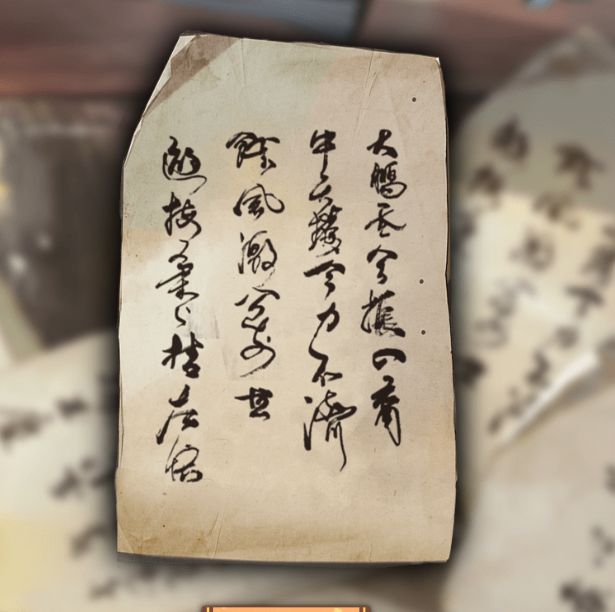 大鵬飛兮振八裔
中天摧兮力不濟
餘風激兮萬世
遊扶桑兮挂左袂